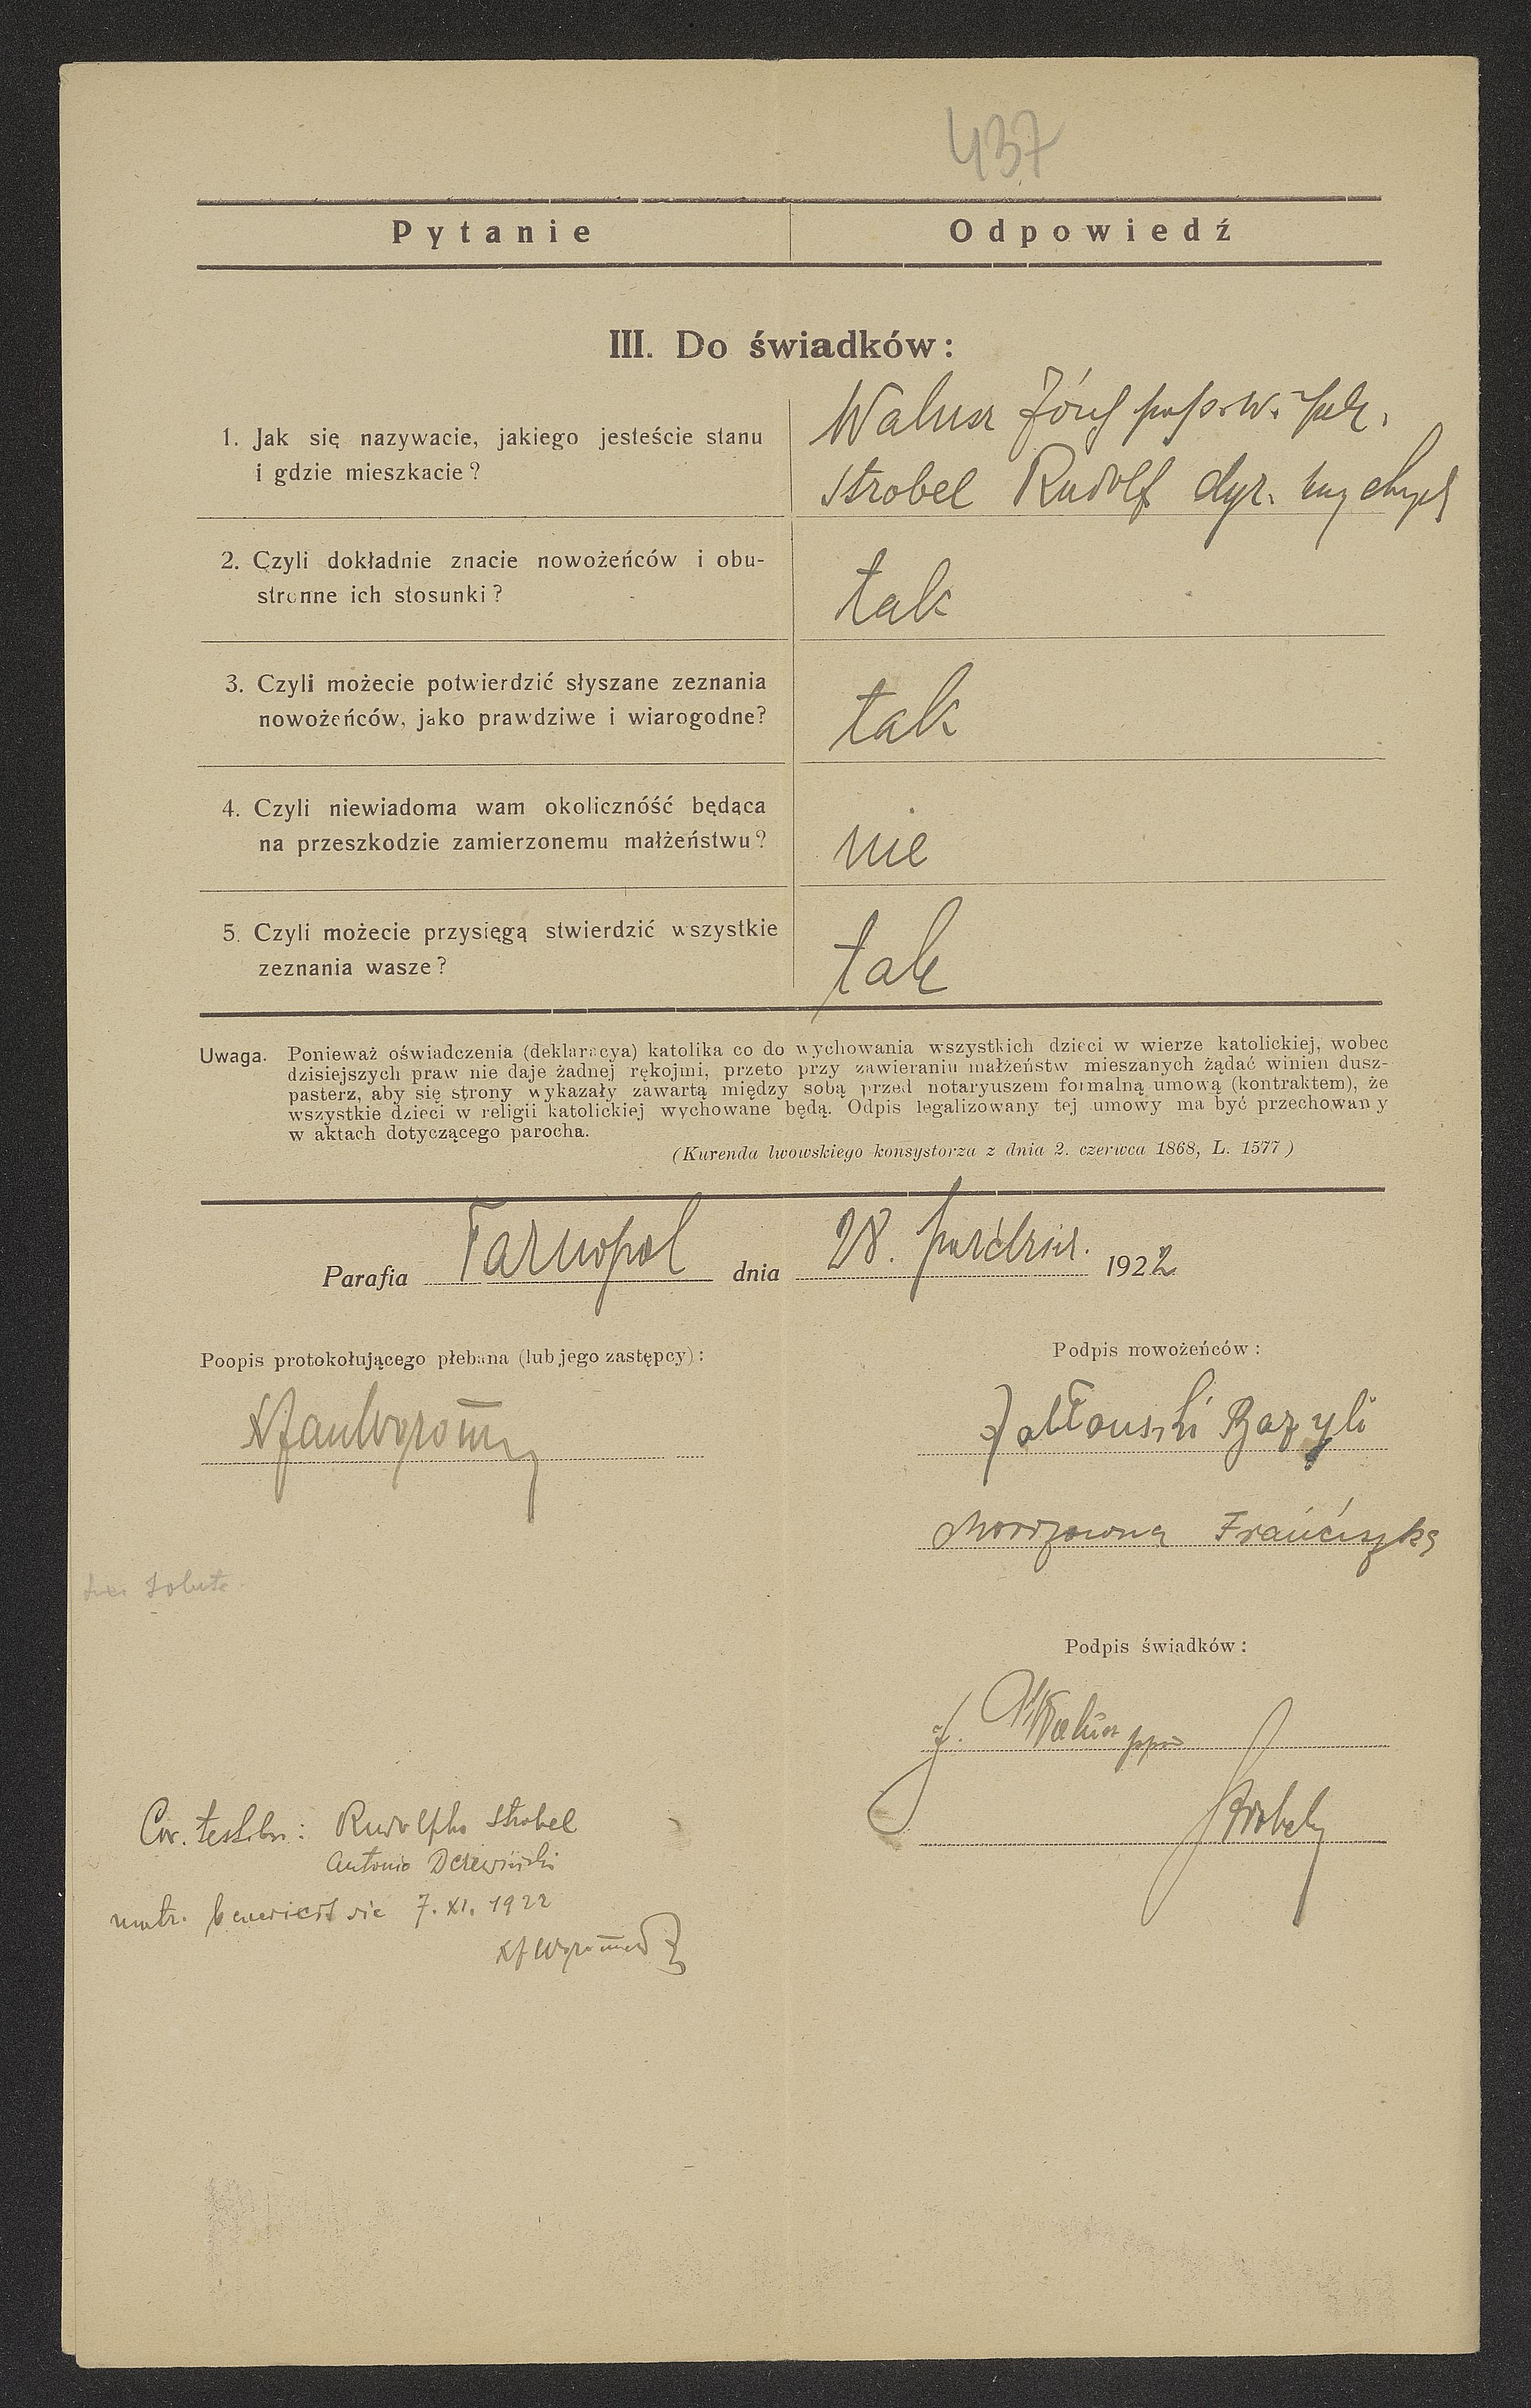 437
Pytanie Odpowiedź
III. Do świadków:
1. Jak się nazywacie, jakiego jesteście stanu
i gdzie mieszkacie?
Walusz Józef
Strobel Rudolf dyr.
2. Czyli dokładnie znacie nowożeńców i obu-
stronne ich stosunki?
tak
3. Czyli możecie potwierdzić słyszane zeznania
nowożeńców, jako prawdziwe i wiarogodne?
tak
4. Czyli niewiadoma wam okolicznóść będąca
na przeszkodzie zamierzonemu małżeństwu?
nie
5. Czyli możecie przysięgą stwierdzić wszystkie
zeznania wasze?
tak
Uwaga. Ponieważ oświadczenia (deklaracya) katolika co do wychowania wszystkich dzieci w wierze katolickiej, wobec
dzisiejszych praw nie daje żadnej rękojmi, przeto przy zawieraniu małżeństw mieszanych żądać winien dusz-
pasterz, aby się strony wykazały zawartą między sobą przed notaryuszem formalną umową (kontraktem), że
wszystkie dzieci w religii katolickiej wychowane będą. Odpis legalizowany tej umowy ma być przechowany
w aktach dotyczącego parocha.
(Kurenda lwowskiego konsystorza z dnia 2. czerwca 1868, L. 1577)
Parafia Tarnopol dnia 28. paździer. 1922
Poopis protokołującego plebana (lub jego zastępcy):
Podpis nowożeńców:
Jabłoński Bazyli
Franciszka
Podpis świadków:
J.
Strobel
Cor. testibus: Rudolpho Strobel
Antonio Derewiński
matr. 7. XI. 1922